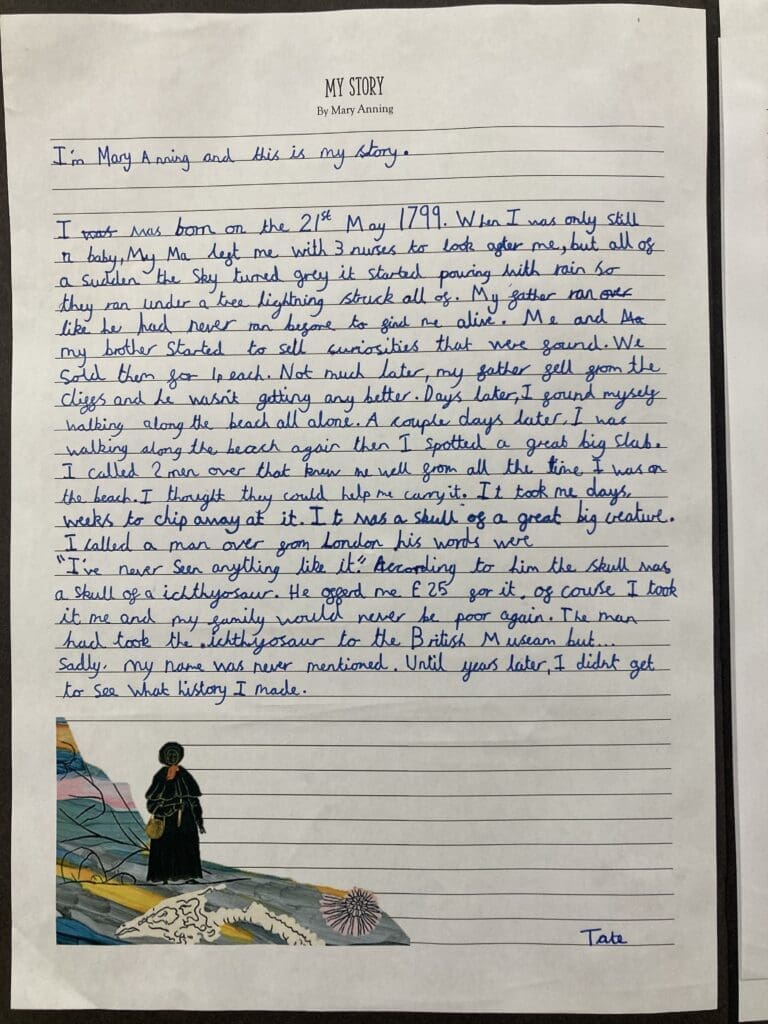 MY STORY
By Mary Anning
I'm Mary Anning and this is my story.
I was was born on the 21st May 1799. When I was only still
a baby, My Ma left me with 3 nurses to look after me, but all of
a sudden the Sky turned grey it started pouring with rain so
they ran under a tree lightning struck all of. My father ran over
like he had never ran before to find me alive. Me and
my brother Started to sell curiosities that were found. We
Sold them for 1p each. Not much later, my father fell from the
cliffs and he wasn't getting any better. Days later, I found myself
walking along the beach all alone. A couple days later, I was
walking along the beach again then I spotted a great big Slab.
I called 2 men over that knew me well from all the time I was on
the beach. I thought they could help me carry it. It took me days,
weeks to chip away at it. It was a skull of a great big creature.
I called a man over from London his words were
"I've never seen anything like it." According to him the skull was
a skull of a ichthyosaur. He offerd me £25 for it, of course I took
it me and my family would never be poor again. The man
had took the ichthyosaur to the British Museam but...
Sadly. my name was never mentioned. Until years later, I didnt get
to see what history I made.
Tate